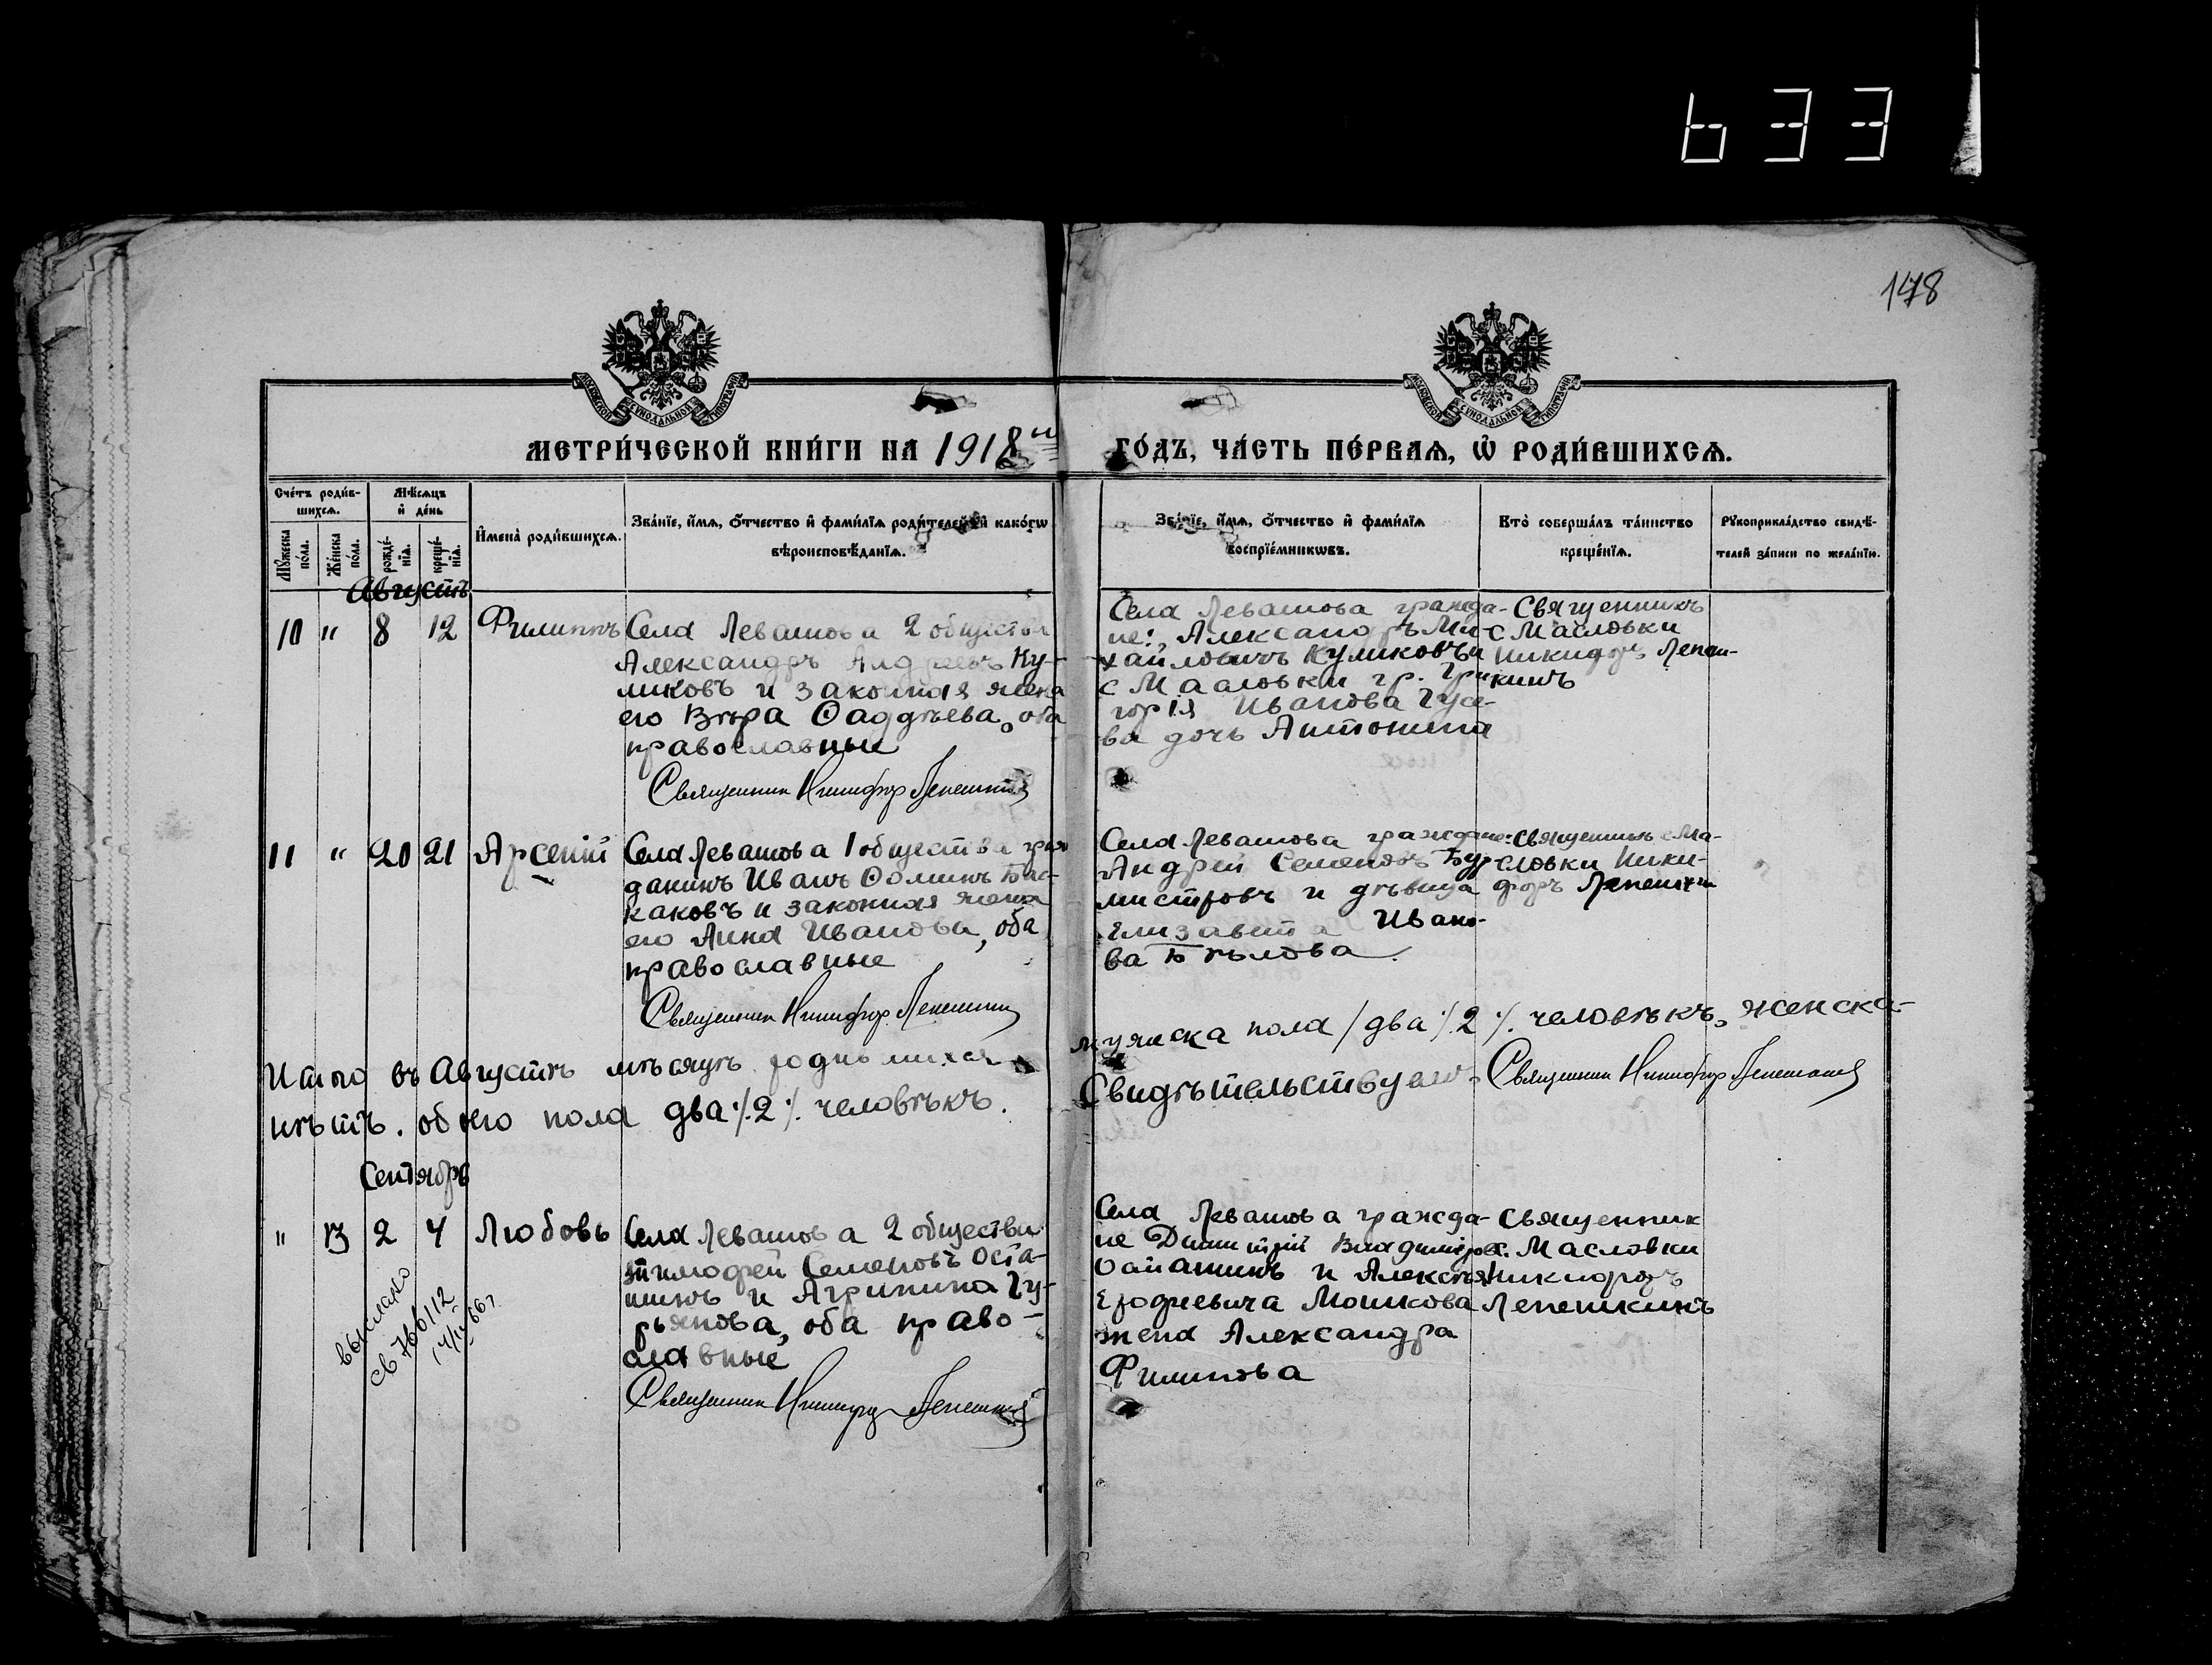 633
148
МОСКОВСКОЙ СѴНОДАЛЬНОЙ ТИПОГРАФІИ
МОСКОВСКОЙ СѴНОДАЛЬНОЙ ТИПОГРАФІИ
МЕТРИ́ЧЕСКОЙ КНИ́ГИ НА 1918й
ГО́ДЪ, ЧА́СТЬ ПЕ́РВАѦ, Ѡ҆ РОДИ́ВШИХСѦ.
Сче́тъ роди́в-
шихсѧ.
Мꙋ́жеска по́ла.
Же́нска по́ла.
Мѣ́сѧцъ
и҆ де́нь
рожде́-
нїѧ.
креще́-
нїѧ.
И҆мена̀ роди́вшихсѧ.
Зва́нїе, и҆́мѧ, ѻ҆́тчество и҆ фами́лїѧ роди́телей и҆ како́гѡ
вѣроисповѣ́данїѧ.
Зва́нїе, и҆́мѧ, ѻ҆́тчество и҆ фами́лїѧ
воспрїе́мникѡвъ.
Кто̀ соверша́лъ та́инство
креще́нїѧ.
Рꙋкоприкла́дство свидѣ́-
телей за́писи по жела́нїю.
Августъ
10 " 8 12 Филиппъ
Села Левашова 2 общества
Александръ Андреевъ Ку-
ликовъ и законная жена
его Вѣра Ѳаддѣева, оба
православные
Священник Никифор Лепешкин
Села Левашова гражда-
не: Александръ Ми-
хайловичъ Куликовъ и
с Масловки гр. Гри-
горія Иванова Гусе-
ва дочь Антонина
Священникъ
с Масловки
Никифоръ Лепеш-
кинъ
11 " 20 21 Арсеній
Села Левашова 1 общества граж
данинъ Иванъ Ѳоминъ Бас-
каковъ и законная жена
его Анна Иванова, оба
православные
Священник Никифор Лепешкин
Села Левашова граждане:
Андрей Семеновъ Бур-
мистровъ и дѣвица
Елизавета Ивано-
ва Бѣлова
Священникъ с Ма-
словки Ники-
форъ Лепешкин
Итого въ Августѣ мѣсяцѣ родившихся
мужеска пола /два ⁒ 2 ⁒ человѣкъ, женска-
нѣтъ. обоего пола два ⁒ 2 ⁒ человѣкъ.
Свидѣтельствую: Священник Никифор Лепешкин
Сентябрь
" 13 2 4 Любовь
Села Левашова 2 общества
Тимофей Семеновъ Оста-
шинъ и Агрипина Гу-
рьянова, оба право-
славные
Священник Никифор Лепешкин
Села Левашова гражда-
не Димитрій Владиміров
и Алексѣя
Моткова
жена Александра
Филипова
Священник
с. Масловки
Никифоръ
Лепешкинъ
выслано
св 766112